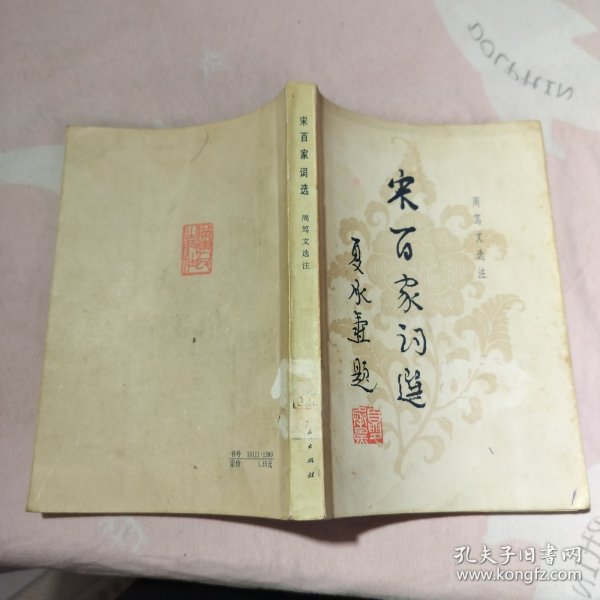 宋百家詞選
周笃文选注
夏承燾題
宋百家词选
周笃文选注
人民出版社
书号 10111·1389
定价 1.35元
DOLPHIN
孔夫子旧书网
www.kongfz.com